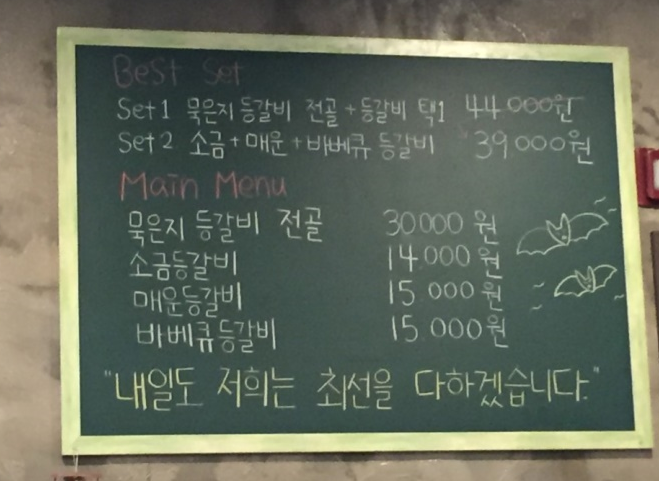 Best Set
Set 1 묵은지 등갈비 전골 + 등갈비 택1 44.000원
Set 2 소금 + 매운 + 바베큐 등갈비 39.000원
Main Menu
묵은지 등갈비 전골 30000 원
소금등갈비 14.000원
매운등갈비 15.000원
바베큐등갈비 15.000원
"내일도 저희는 최선을 다하겠습니다."